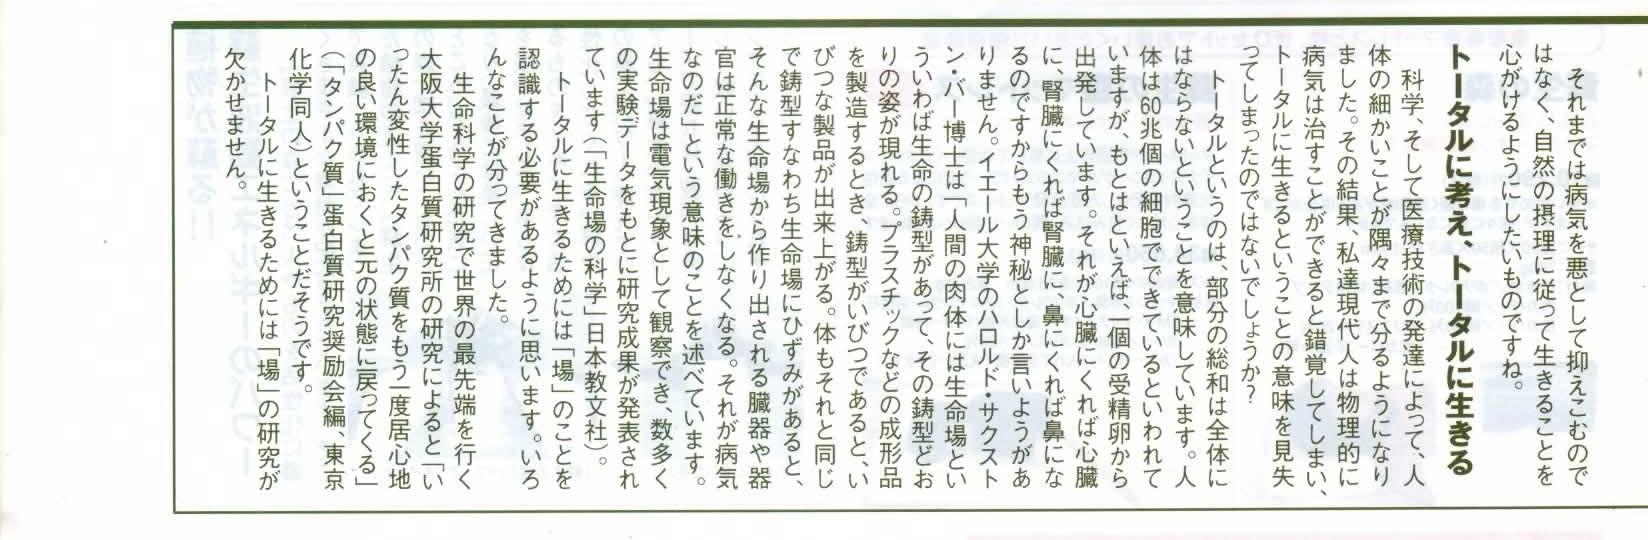 それまでは病気を悪として抑えこむので
はなく、自然の摂理に従って生きることを
心がけるようにしたいものですね。
トータルに考え、トータルに生きる
科学、そして医療技術の発達によって、人
体の細かいことが隅々まで分るようになり
ました。その結果、私達現代人は物理的に
病気は治すことができると錯覚してしまい、
トータルに生きるということの意味を見失
ってしまったのではないでしょうか?
トータルというのは、部分の総和は全体に
はならないということを意味しています。人
体は60兆個の細胞でできているといわれて
いますが、もとはといえば、一個の受精卵から
出発しています。それが心臓にくれば心臓
に、腎臓にくれば腎臓に、鼻にくれば鼻にな
るのですからもう神秘としか言いようがあ
りません。イエール大学のハロルド・サクスト
ン・バー博士は「人間の肉体には生命場とい
ういわば生命の鋳型があって、その鋳型どお
りの姿が現れる。プラスチックなどの成形品
を製造するとき、鋳型がいびつであると、い
びつな製品が出来上がる。体もそれと同じ
で鋳型すなわち生命場にひずみがあると、
そんな生命場から作り出される臓器や器
官は正常な働きをしなくなる。それが病気
なのだ」という意味のことを述べています。
生命場は電気現象として観察でき、数多く
の実験データをもとに研究成果が発表され
ています(「生命場の科学」日本教文社)。
トータルに生きるためには「場」のことを
認識する必要があるように思います。いろ
んなことが分ってきました。
生命科学の研究で世界の最先端を行く
大阪大学蛋白質研究所の研究によると「い
ったん変性したタンパク質をもう一度居心地
の良い環境におくと元の状態に戻ってくる」
(「タンパク質」蛋白質研究奨励会編、東京
化学同人)ということだそうです。
トータルに生きるためには「場」の研究が
欠かせません。